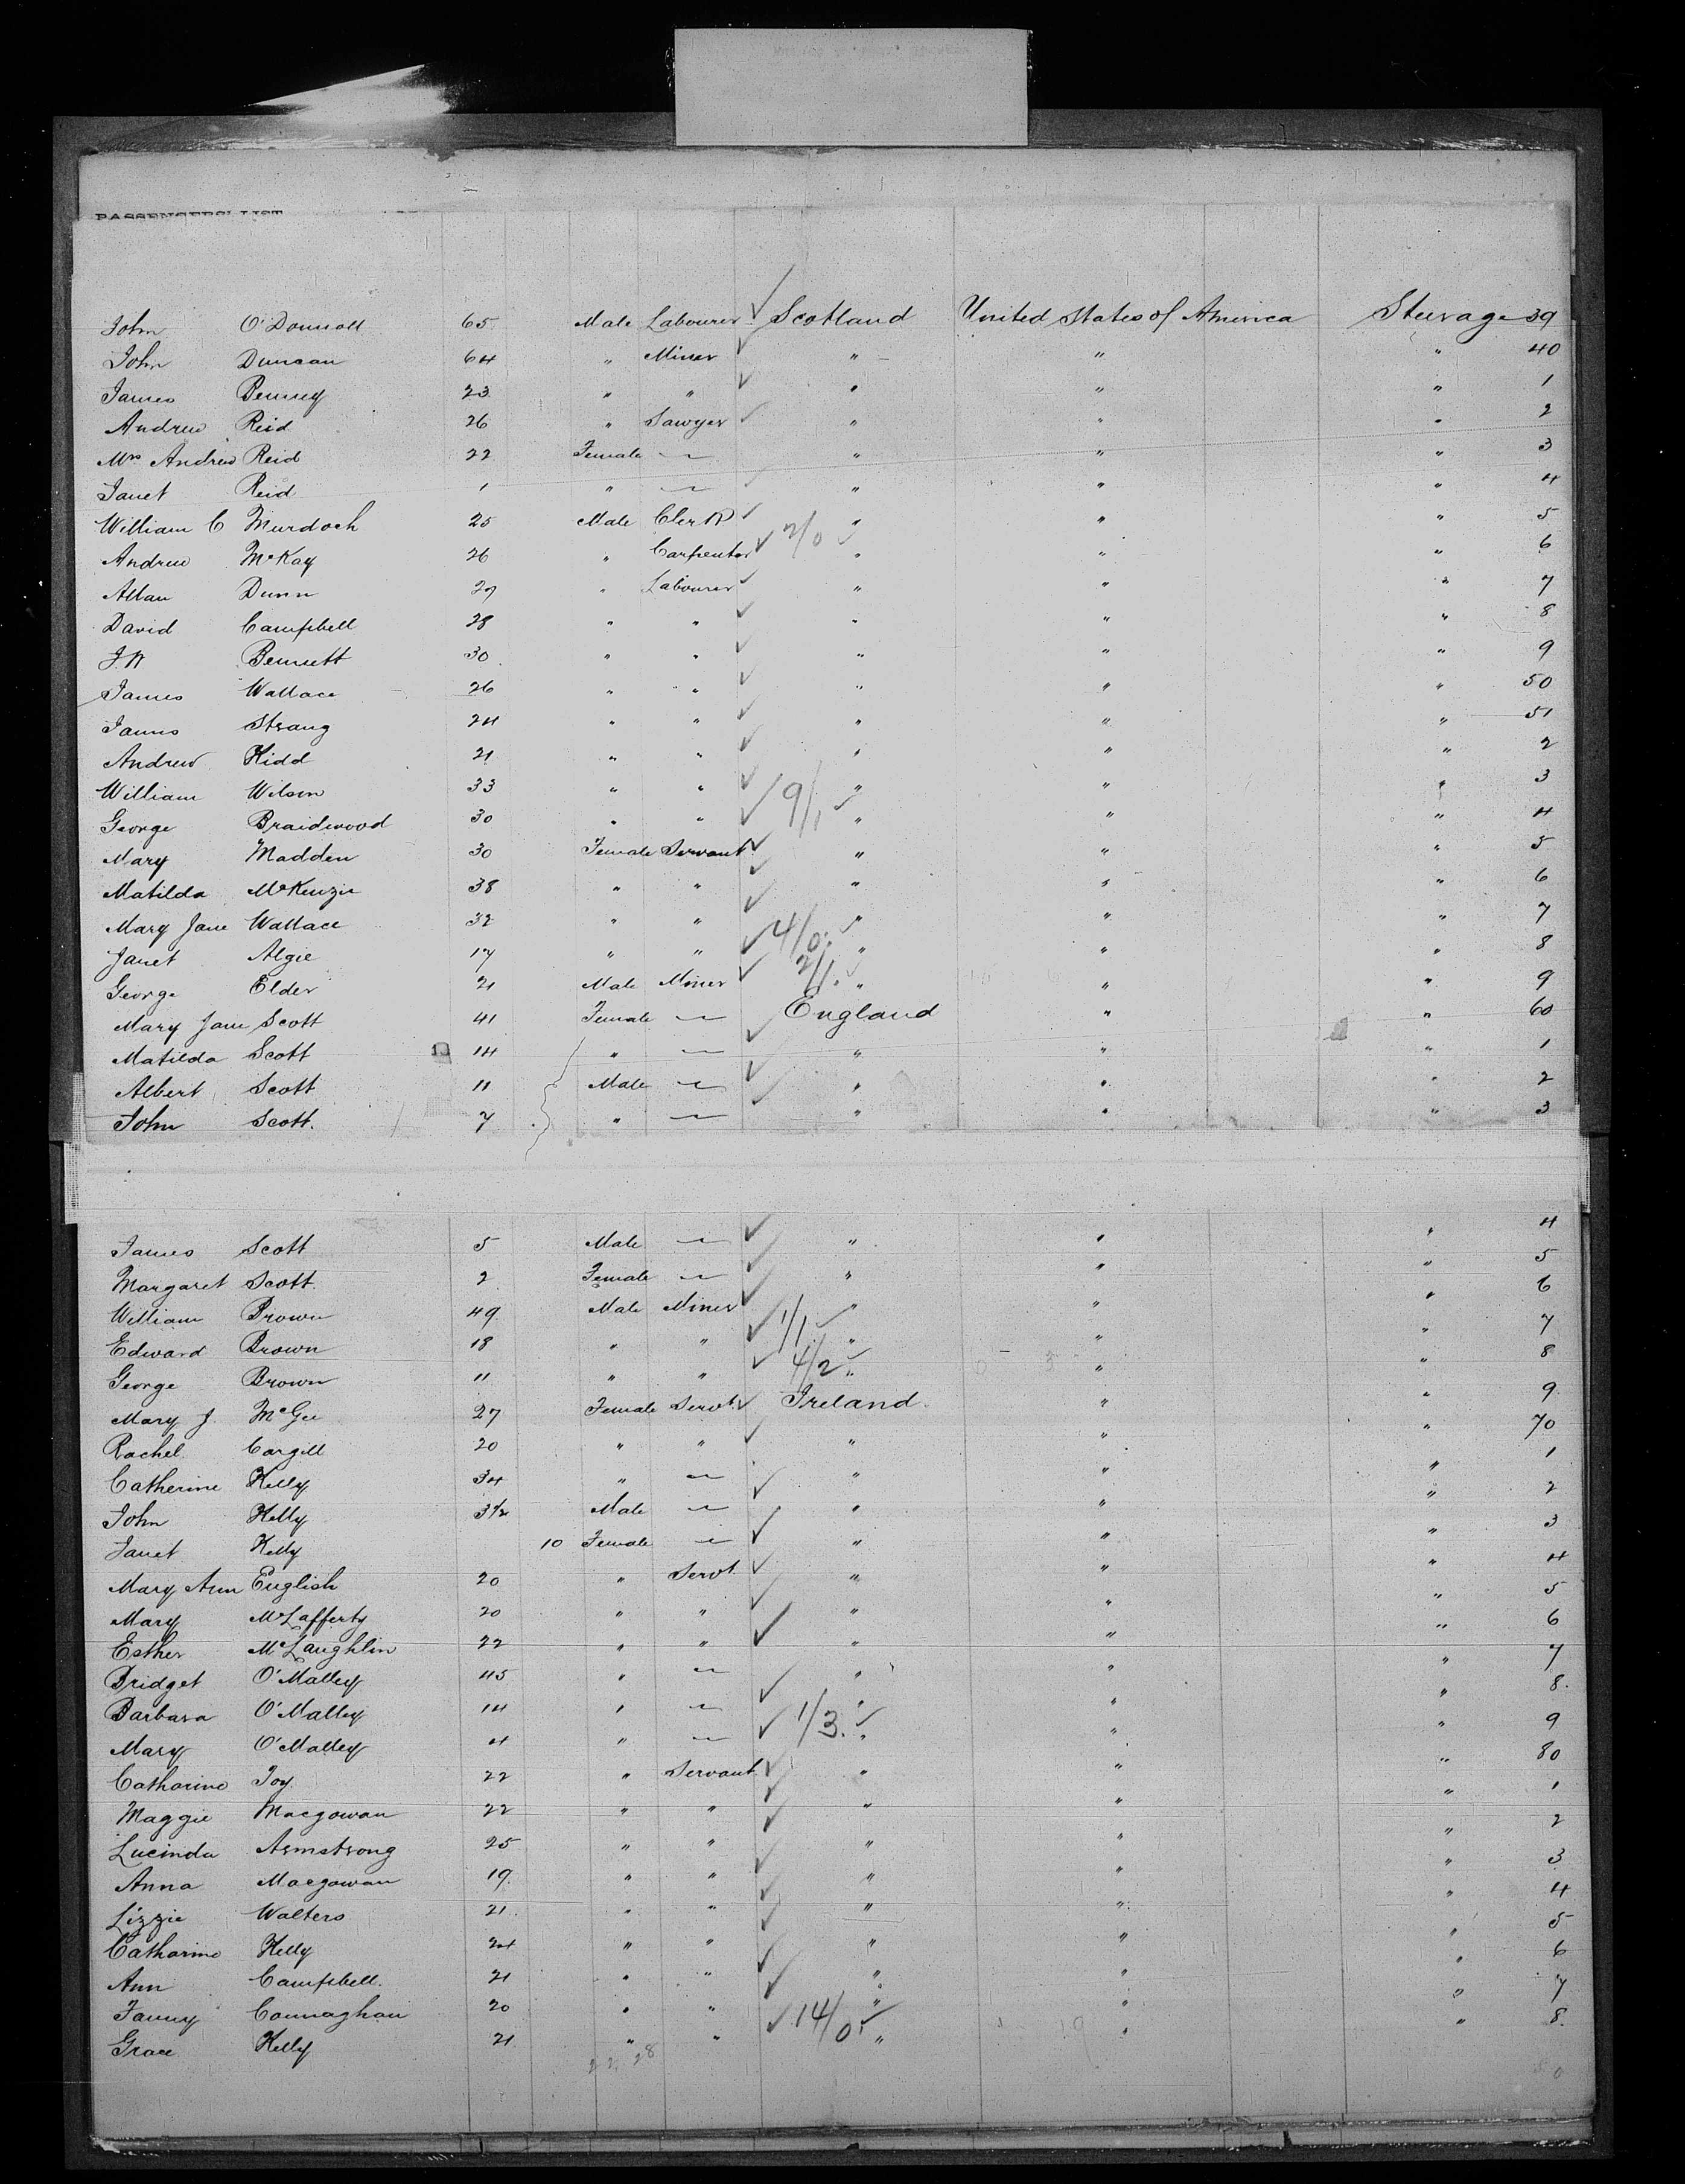 PASSENGERS' LIST
John O'Donnell 65 Male Labourer Scotland United States of America Steerage 39
John Duncan 64 " Miner " " " 40
James Penney 23 " " " " " 1
Andrew Reid 26 " Sawyer " " " 2
Mrs Andrew Reid 22 Female — " " " 3
Janet Reid 1 " — " " " 4
William C Murdoch 25 Male Clerk " " " 5
Andrew McKay 26 " Carpenter 2/0 " " " 6
Allan Dunn 27 " Labourer " " " 7
David Campbell 28 " " " " " 8
J. N Bennett 30 " " " " " 9
James Wallace 26 " " " " " 50
James Strang 24 " " " " " 51
Andrew Kidd 21 " " " " " 2
William Wilson 33 " " " " " 3
George Braidwood 30 " " 9/1 " " " 4
Mary Madden 30 Female Servant " " " 5
Matilda McKenzie 38 " " " " " 6
Mary Jane Wallace 32 " " " " " 7
Janet Algie 17 " " 4/0 " " " 8
George Elder 21 Male Miner 2/1. " " " 9
Mary Jane Scott 41 Female — England " " 60
Matilda Scott 14 " — " " " 1
Albert Scott 11 Male — " " " 2
John Scott. 7 " — " " " 3
James Scott 5 Male — " " " 4
Margaret Scott. 2 Female — " " " 5
William Brown 49 Male Miner " " " 6
Edward Brown 18 " " 1/1. " " " 7
George Brown 11 " " 4/2 " " " 8
Mary J. McGee 27 Female Servt. Ireland. " " 9
Rachel Cargill 20 " " " " " 70
Catherine Kelly 34 " — " " " 1
John Kelly 3 1/2 Male — " " " 2
Janet Kelly 10 Female — " " " 3
Mary Ann English 20 " Servt. " " " 4
Mary McLafferty 20 " " " " " 5
Esther McLaughlin 22 " " " " " 6
Bridget O'Malley 45 " — " " " 7
Barbara O'Malley 14 " — " " " 8.
Mary O'Malley 4 " — 1/3. " " " 9
Catharine Joy 22 " Servant " " " 80
Maggie Macgowan 22 " " " " " 1
Lucinda Armstrong 25 " " " " " 2
Anna Macgowan 19. " " " " " 3
Lizzie Walters 21. " " " " " 4
Catharine Kelly 24 " " " " " 5
Ann Campbell. 21 " " " " " 6
Fanny Connaghan 20 " " " " " 7
Grace Kelly 21 " " 14/0 " " " 8.